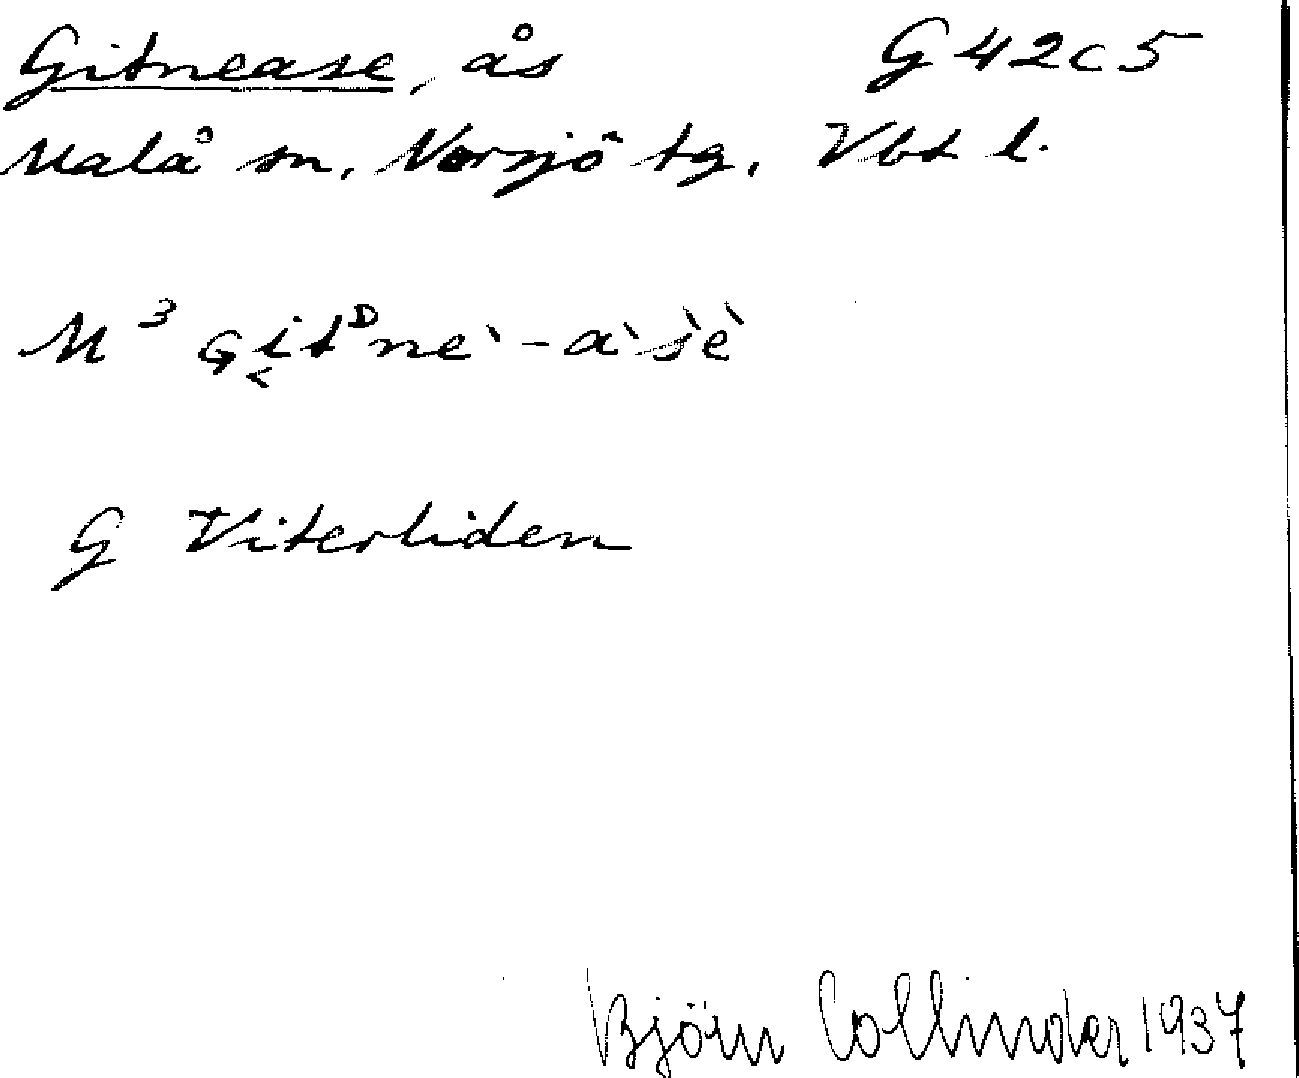 Gitnease, ås G 42 c 5
Malå sn, Norsjö tg, Vbt l.
M³ Gi̬tᴰne`-a`s`e`
G Viterliden
Björn Collinder 1937